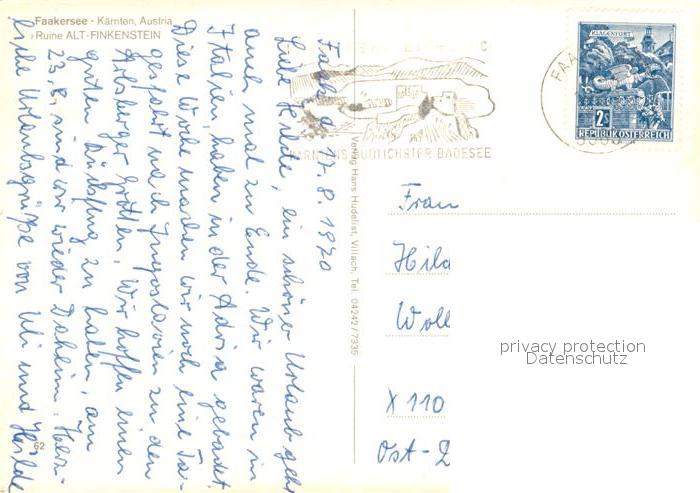 Faakersee - Kärnten, Austria
Ruine ALT-FINKENSTEIN
Faak, d. 17.8.1970
Liebe Leute, ein schöner Urlaub geht
auch mal zu Ende. Wir waren in
Italien, haben in der Adria gebadet.
Diese Woche machen wir noch eine Ta-
gesfahrt nach Jugoslavien zu den
Adelsberger Grotten. Wir hoffen einen
guten Rückflug zu haben, am
23.8. sind wir wieder Daheim. Herz-
liche Urlaubsgrüße von Uli und Hilde
62
Verlag Hans Hudelist, Villach, Tel. 04242/7335
KÄRNTENS SÜDLICHSTER BADESEE
FAA
KLAGENFURT
2S
REPUBLIK ÖSTERREICH
Frau
Hild
Woll
X 110
Ost-
privacy protection
Datenschutz